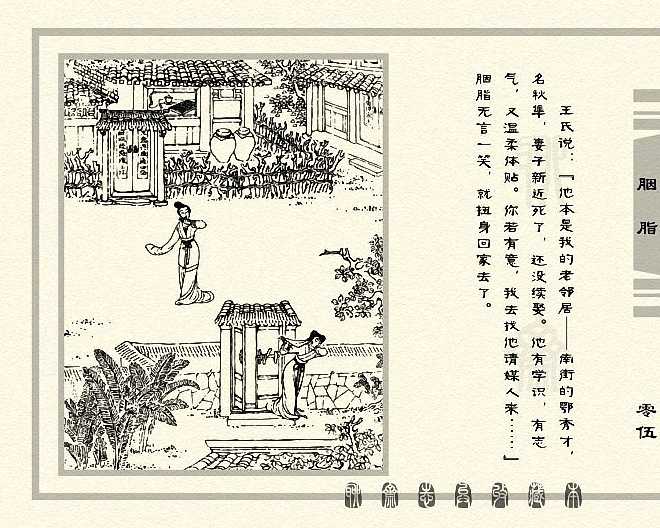 王氏说：「他本是我的老邻居——南街的鄂秀才，
名秋隼，妻子新近死了，还没续娶。他有学识，有志
气，又温柔体贴。你若有意，我去找他请媒人来……」
胭脂无言一笑，就扭身回家去了。
胭脂
零伍
聊斋志异收藏本